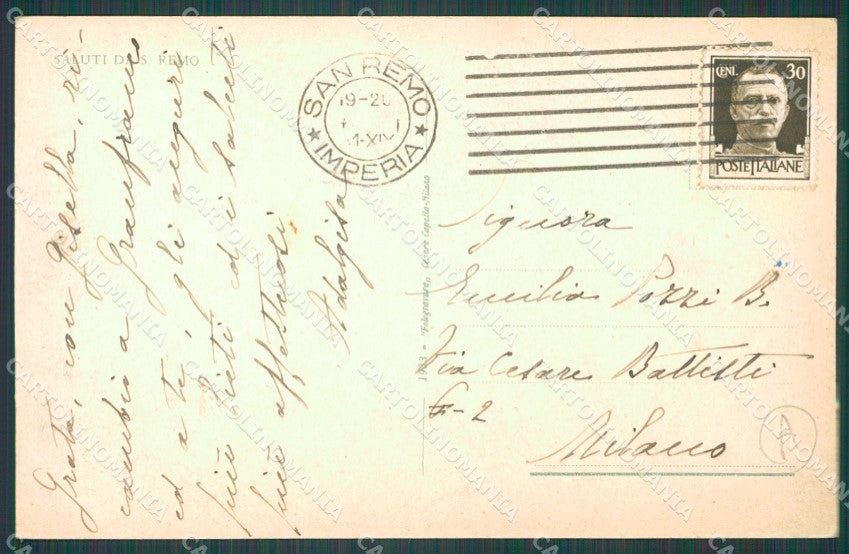 SALUTI DA S. REMO
Grata, con Gisella, ri
cambio a Gianfranco
ed a te, gli auguri
più lieti ed i saluti
più affettuosi
Adalgisa
SAN REMO
19-20
1-XIV
IMPERIA
CENT. 30
POSTE ITALIANE
1933 - "Fotogravure" Cesare Capello-Milano
Signora
Emilia Pozzi B.
Via Cesare Battisti
2
Milano
A
CARTOLINOMANIA